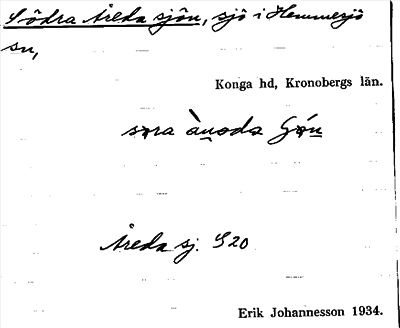 Södra Åreda sjön, sjö i Hemmesjö
sn,
Konga hd, Kronobergs län.
Åreda sj. S 20
Erik Johannesson 1934.